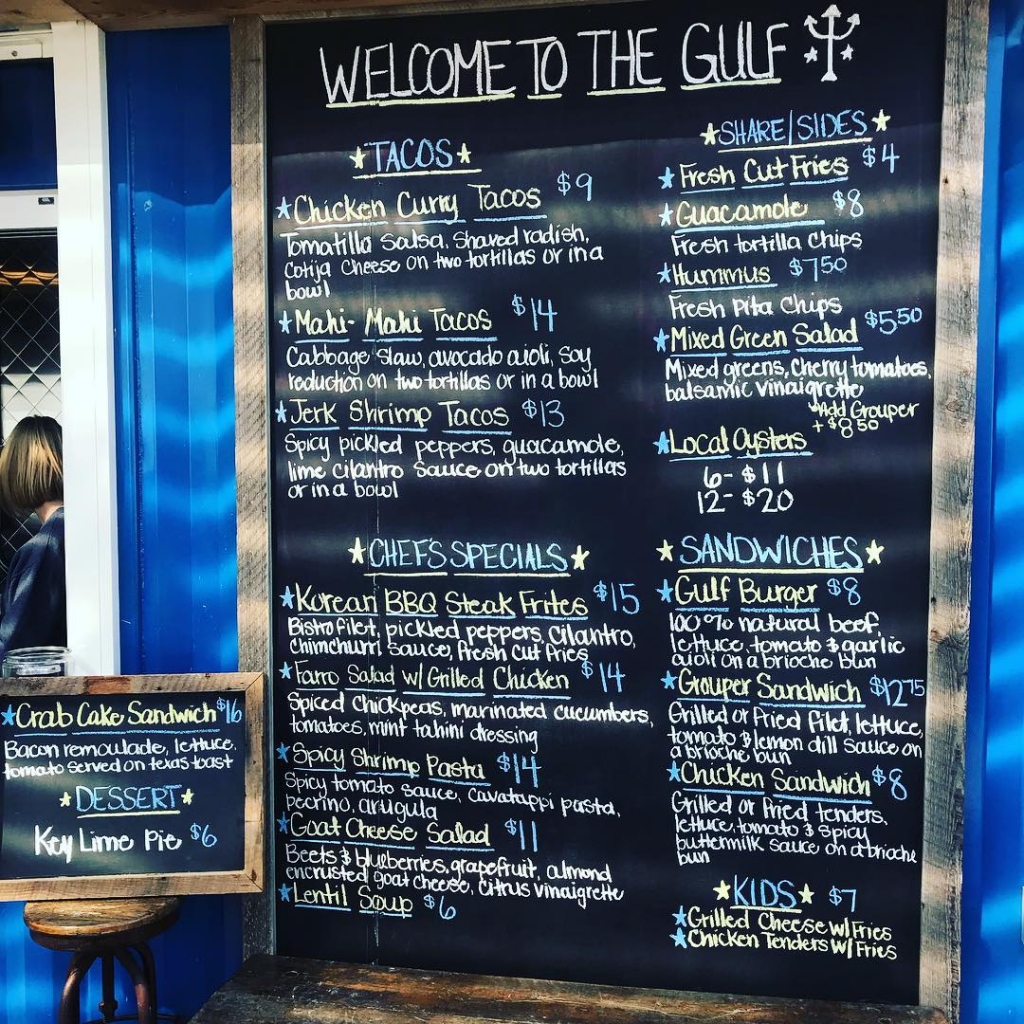 WELCOME TO THE GULF
TACOS
Chicken Curry Tacos $9
Tomatillo Salsa, Shaved radish,
Cotija Cheese on two tortillas or in a
bowl
Mahi-Mahi Tacos $14
Cabbage Slaw, avocado aioli, Soy
reduction on two tortillas or in a bowl
Jerk Shrimp Tacos $13
Spicy pickled peppers, guacamole,
lime cilantro sauce on two tortillas
or in a bowl
CHEF'S SPECIALS
Korean BBQ Steak Frites $15
Bistro filet, pickled peppers, cilantro,
chimichurri sauce, fresh cut fries
Farro Salad w/ Grilled Chicken $14
Spiced Chickpeas, marinated cucumbers,
tomatoes, mint tahini dressing
Spicy Shrimp Pasta $14
Spicy tomato sauce, cavatappi pasta,
pecrino, arugula
Goat Cheese Salad $11
Beets & blueberries, grapefruit, almond
encrusted goat cheese, citrus vinaigrette
Lentil Soup $6
SHARE/SIDES
Fresh Cut Fries $4
Guacamole $8
Fresh tortilla Chips
Hummus $7.50
Fresh Pita Chips
Mixed Green Salad $5.50
Mixed greens, Cherry tomatoes,
balsamic vinaigrette
*Add Grouper
+ $8.50
Local Oysters
6- $11
12- $20
SANDWICHES
Gulf Burger $8
100% natural beef,
lettuce, tomato & garlic
aioli on a brioche bun
Grouper Sandwich $12.75
Grilled or Fried Filet, lettuce,
tomato & lemon dill sauce on
a brioche bun
Chicken Sandwich $8
Grilled or Fried tenders,
lettuce, tomato & spicy
buttermilk sauce on a brioche
bun
KIDS $7
Grilled Cheese w/ Fries
Chicken Tenders w/ Fries
Crab Cake Sandwich $16
Bacon remoulade, lettuce,
tomato served on texas toast
DESSERT
Key Lime Pie $6